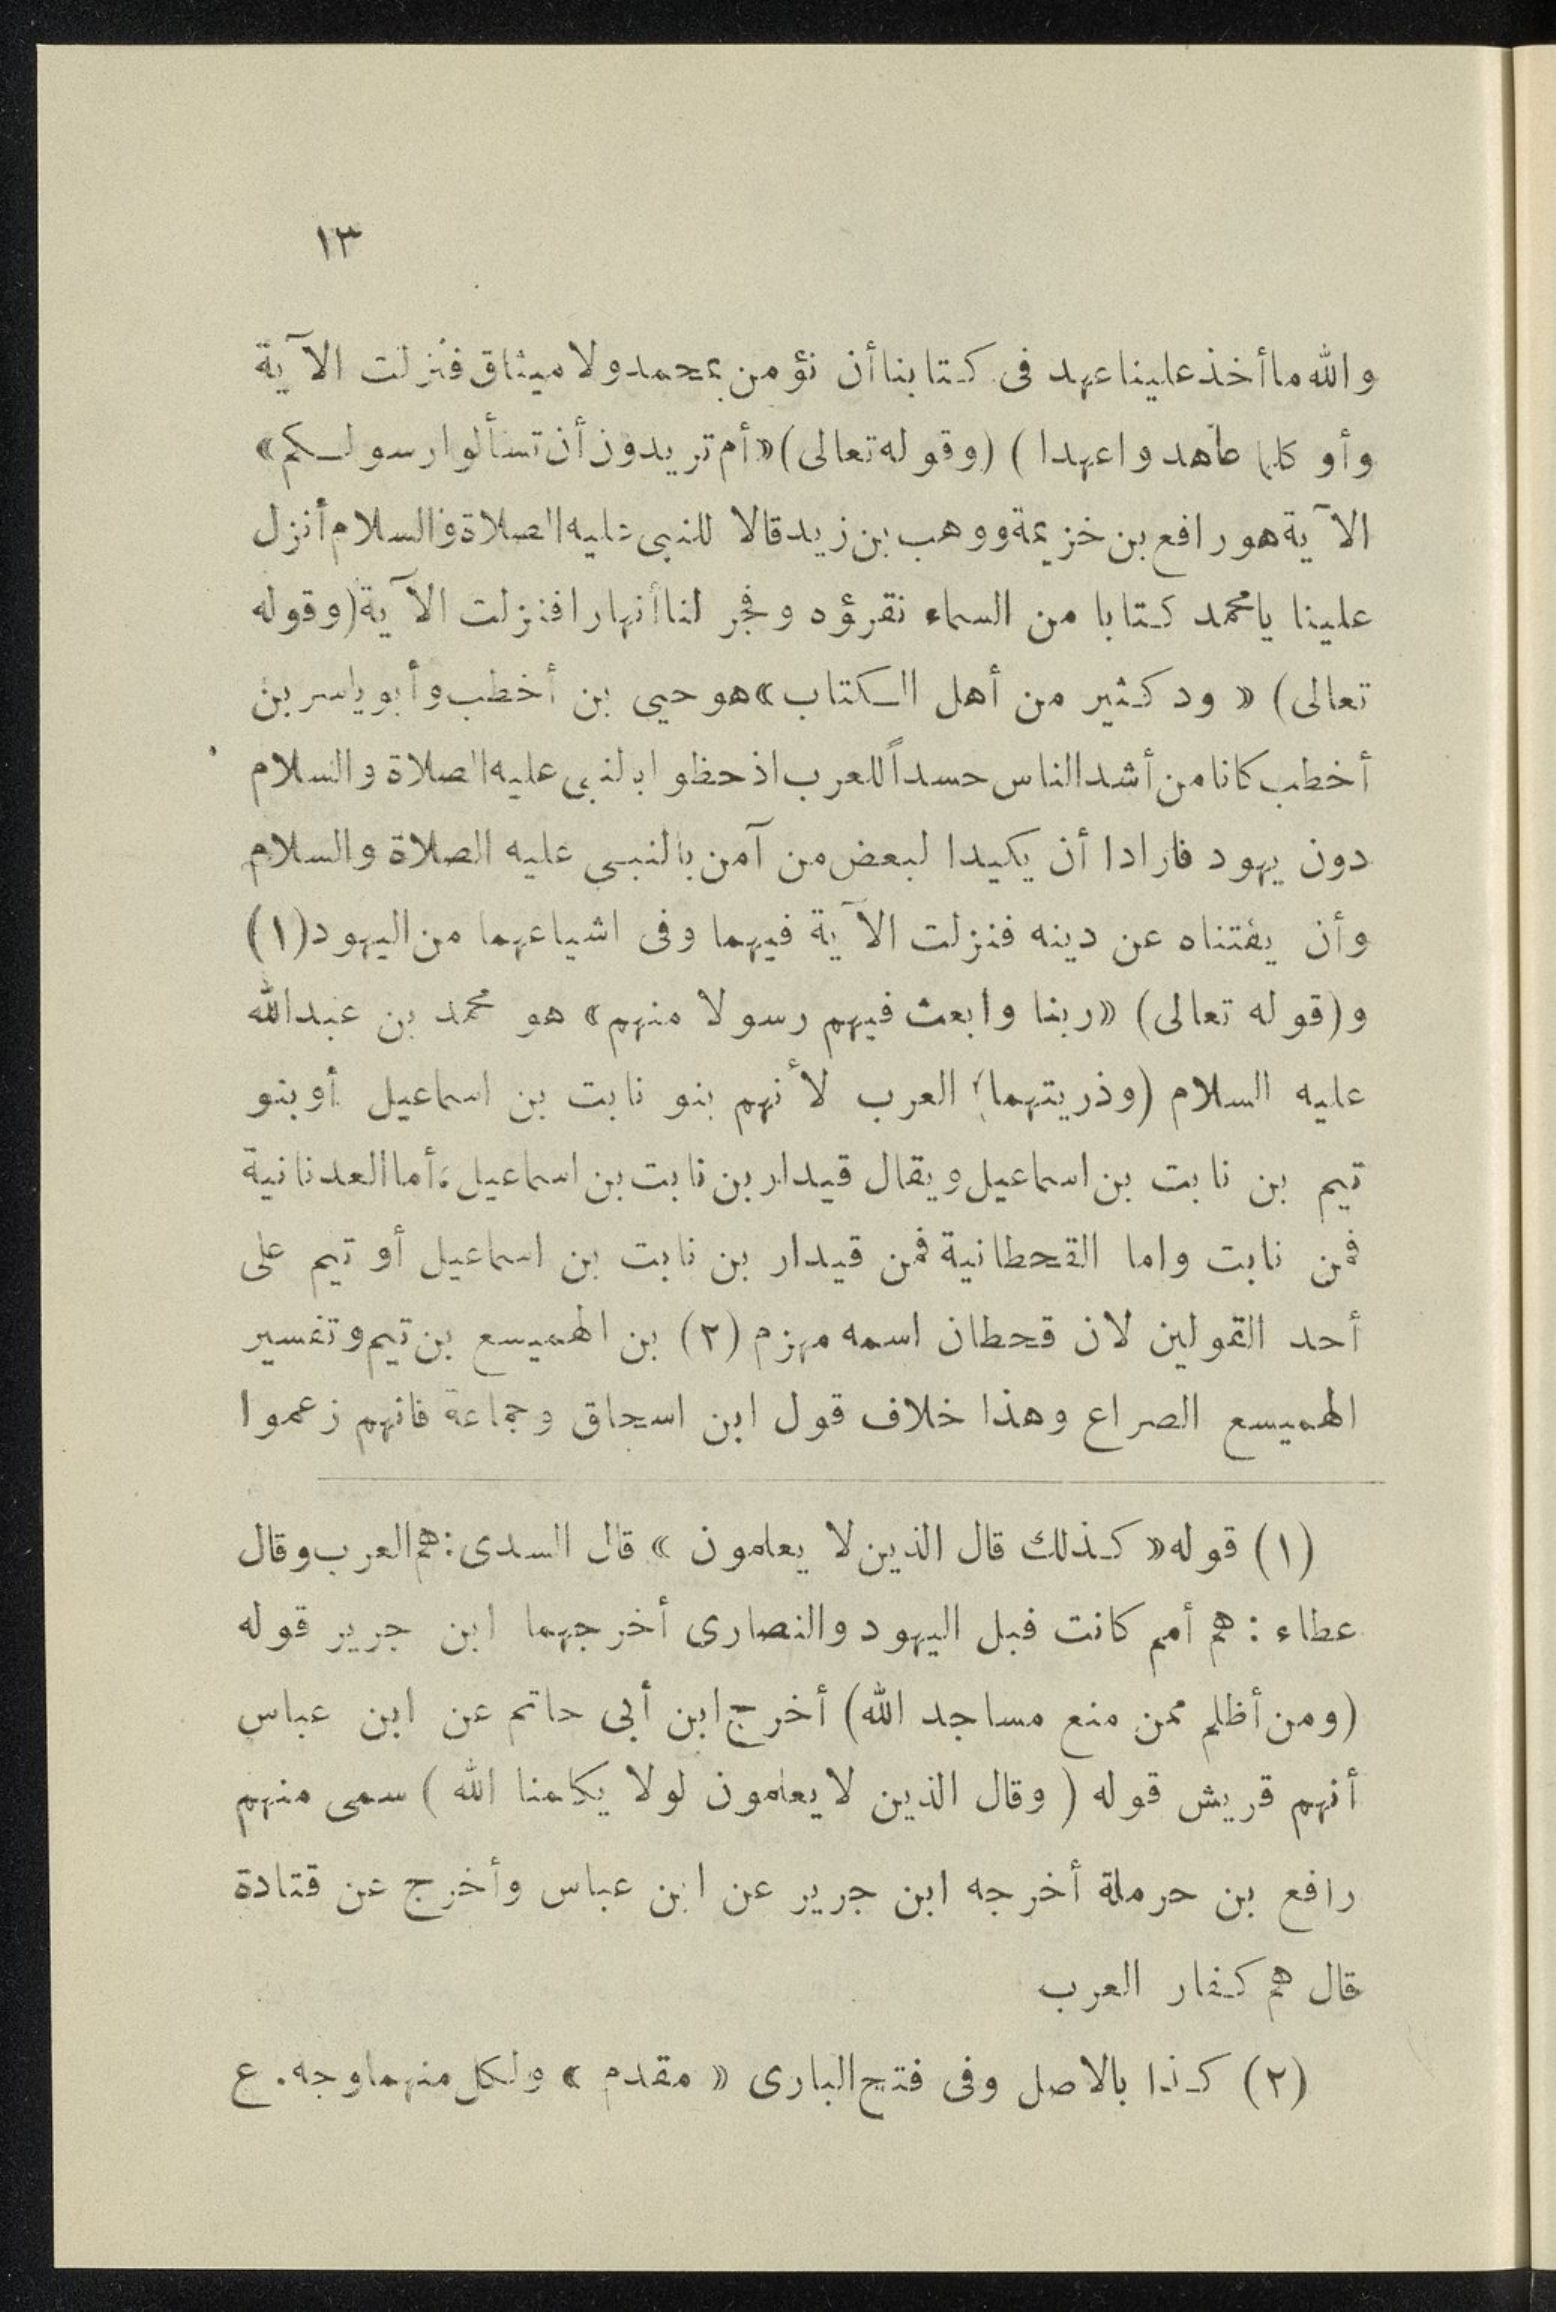 ١٣
والله ماأخذ علينا عهد فى كتابنا أن نؤمن بمحمد ولا ميثاق فنزلت الآية
وأو كلما عاهدوا عهدا ) (وقوله تعالى) «أم تريدون أن تسألوا رسولكم»
الآية هو رافع بن خزيمة ووهب بن زيد قالا للنبى عليه الصلاة والسلام أنزل
علينا يامحمد كتابا من السماء نقرؤه وفجر لنا أنهارا فنزلت الآية (وقوله
تعالى) « ود كثير من أهل الكتاب» هو حيي بن أخطب وأبو ياسر بن
أخطب كانا من أشد الناس حسداً للعرب اذ حظوا بالنبى عليه الصلاة والسلام
دون يهود فارادا أن يكيدا لبعض من آمن بالنبى عليه الصلاة والسلام
وأن يفتناه عن دينه فنزلت الآية فيهما وفى اشياعهما من اليهود (١)
و(قوله تعالى) «ربنا وابعث فيهم رسولا منهم» هو محمد بن عبدالله
عليه السلام (وذريتهما) العرب لأنهم بنو نابت بن اسماعيل أو بنو
تيم بن نابت بن اسماعيل ويقال قيدار بن نابت بن اسماعيل، أما العدنانية
فمن نابت واما القحطانية فمن قيدار بن نابت بن اسماعيل أو تيم على
أحد القولين لان قحطان اسمه مهزم (٢) بن الهميسع بن تيم وتفسير
الهميسع الصراع وهذا خلاف قول ابن اسحاق وجماعة فانهم زعموا
(١) قوله « كذلك قال الذين لا يعلمون » قال السدى : هم العرب وقال
عطاء : هم أمم كانت قبل اليهود والنصارى أخرجهما ابن جرير قوله
(ومن أظلم ممن منع مساجد الله) أخرج ابن أبى حاتم عن ابن عباس
أنهم قريش قوله ( وقال الذين لايعلمون لولا يكلمنا الله ) سمى منهم
رافع بن حرملة أخرجه ابن جرير عن ابن عباس وأخرج عن قتادة
قال هم كفار العرب
(٢) كذا بالاصل وفى فتح البارى « مقدم » ولكل منهما وجه. ع